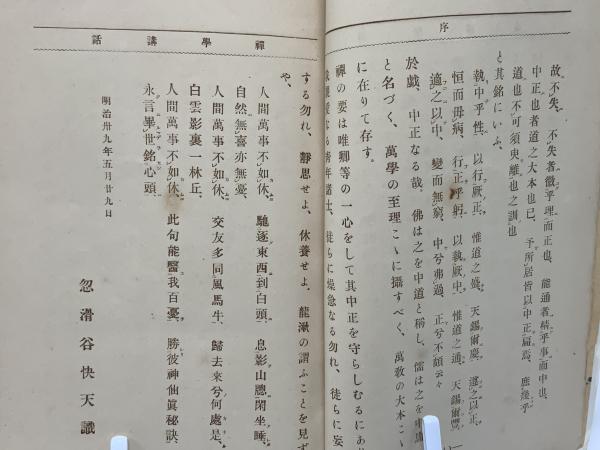 序
故不失、不失者徹乎理而正也、能通者精乎事而中也、
中正也者道之大本也已、予所居皆以中正扁焉、庶幾乎
道也不可須臾離也之訓也
と其銘にいふ、
執中乎性、以行厥正、惟道之
恒而毋病、行正乎躬、以執厥中、惟道之通、天錫爾豐、
適之以中、變而無窮、中兮弗過、正兮不頗云々
於戯、中正なる哉、佛は之を中道と稱し、儒は之を中庸
と名づく、萬學の至理こゝに攝すべく、萬敎の大本こゝ
に在りて存す。
禪の要は唯卿等の一心をして其中正を守らしむるにあ
なる靑年諸士、徒らに燥急なる勿れ、徒らに妄
禪學講話
する勿れ、靜思せよ、休養せよ、龍漱の謂ふことを見ず
や、
人間萬事不如休、馳逐東西到白頭、息影山牕閑坐睡、
自然無喜亦無憂、
人間萬事不如休、交友多同風馬牛、歸去來兮何處是、
白雲影裏一林丘、
人間萬事不如休、此句能醫我百憂、勝彼神仙眞秘訣、
永言畢世銘心頭、
明治卅九年五月廿九日
忽滑谷快天識